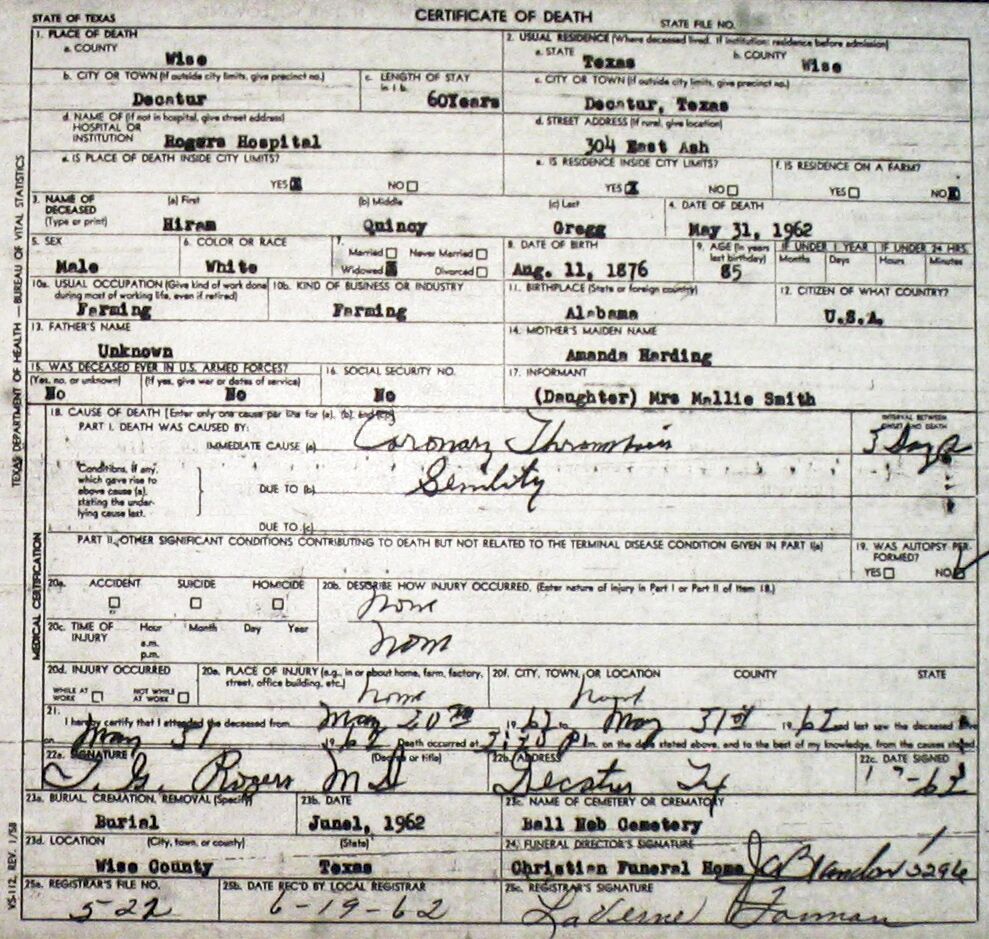 STATE OF TEXAS
CERTIFICATE OF DEATH
STATE FILE NO.
1. PLACE OF DEATH
a. COUNTY
Wise
2. USUAL RESIDENCE (Where deceased lived. If institution: residence before admission)
a. STATE
Texas
b. COUNTY
Wise
b. CITY OR TOWN (If outside city limits, give precinct no.)
Decatur
c. LENGTH OF STAY in 1 b.
60Years
c. CITY OR TOWN (If outside city limits, give precinct no.)
Decatur, Texas
d. NAME OF (If not in hospital, give street address)
HOSPITAL OR
INSTITUTION
Rogers Hospital
d. STREET ADDRESS (If rural, give location)
304 East Ash
e. IS PLACE OF DEATH INSIDE CITY LIMITS?
YES NO
e. IS RESIDENCE INSIDE CITY LIMITS?
YES X NO
f. IS RESIDENCE ON A FARM?
YES NO
3. NAME OF
DECEASED
(Type or print)
(a) First
Hiram
(b) Middle
Quincy
(c) Last
Gregg
4. DATE OF DEATH
May 31, 1962
5. SEX
Male
6. COLOR OR RACE
White
7.
Married Never Married
Widowed Divorced
8. DATE OF BIRTH
Aug. 11, 1876
9. AGE (In years
last birthday)
85
IF UNDER 1 YEAR
Months Days
IF UNDER 24 HRS.
Hours Minutes
10a. USUAL OCCUPATION (Give kind of work done
during most of working life, even if retired)
Farming
10b. KIND OF BUSINESS OR INDUSTRY
Farming
11. BIRTHPLACE (State or foreign country)
Alabama
12. CITIZEN OF WHAT COUNTRY?
U.S.A.
13. FATHER'S NAME
Unknown
14. MOTHER'S MAIDEN NAME
Amanda Harding
15. WAS DECEASED EVER IN U.S. ARMED FORCES?
(Yes, no, or unknown)
No
(If yes, give war or dates of service)
No
16. SOCIAL SECURITY NO.
No
17. INFORMANT
(Daughter) Mrs Mallie Smith
18. CAUSE OF DEATH [Enter only one cause per line for (a), (b), and (c).]
PART I. DEATH WAS CAUSED BY:
IMMEDIATE CAUSE (a)
Coronary Thrombosis
INTERVAL BETWEEN
ONSET AND DEATH
3 Days
Conditions, if any,
which gave rise to
above cause (a),
stating the under-
lying cause last.
DUE TO (b)
Senility
DUE TO (c)
PART II. OTHER SIGNIFICANT CONDITIONS CONTRIBUTING TO DEATH BUT NOT RELATED TO THE TERMINAL DISEASE CONDITION GIVEN IN PART I(a)
19. WAS AUTOPSY PER-
FORMED?
YES NO
20a. ACCIDENT SUICIDE HOMICIDE
20b. DESCRIBE HOW INJURY OCCURRED. (Enter nature of injury in Part I or Part II of Item 18.)
none
20c. TIME OF
INJURY
Hour Month Day Year
a.m.
p.m.
none
20d. INJURY OCCURRED
WHILE AT
WORK
NOT WHILE
AT WORK
20e. PLACE OF INJURY (e.g., in or about home, farm, factory,
street, office building, etc.)
none
20f. CITY, TOWN, OR LOCATION COUNTY STATE
21.
I hereby certify that I attended the deceased from May 20th 1962 to May 31st 1962 and last saw the deceased alive
on May 31 1962 Death occurred at m. on the date stated above, and to the best of my knowledge, from the causes stated.
22a. SIGNATURE (Degree or title)
T. G. Rogers MD
22b. ADDRESS
Decatur Tx
22c. DATE SIGNED
23a. BURIAL, CREMATION, REMOVAL (Specify)
Burial
23b. DATE
June1, 1962
23c. NAME OF CEMETERY OR CREMATORY
Ball Nob Cemetery
23d. LOCATION (City, town, or county) (State)
Wise County Texas
24. FUNERAL DIRECTOR'S SIGNATURE
Christian Funeral Home
25a. REGISTRAR'S FILE NO.
522
25b. DATE REC'D BY LOCAL REGISTRAR
6-19-62
25c. REGISTRAR'S SIGNATURE
LaVerne
TEXAS DEPARTMENT OF HEALTH — BUREAU OF VITAL STATISTICS
MEDICAL CERTIFICATION
VS-112, REV. 1/58